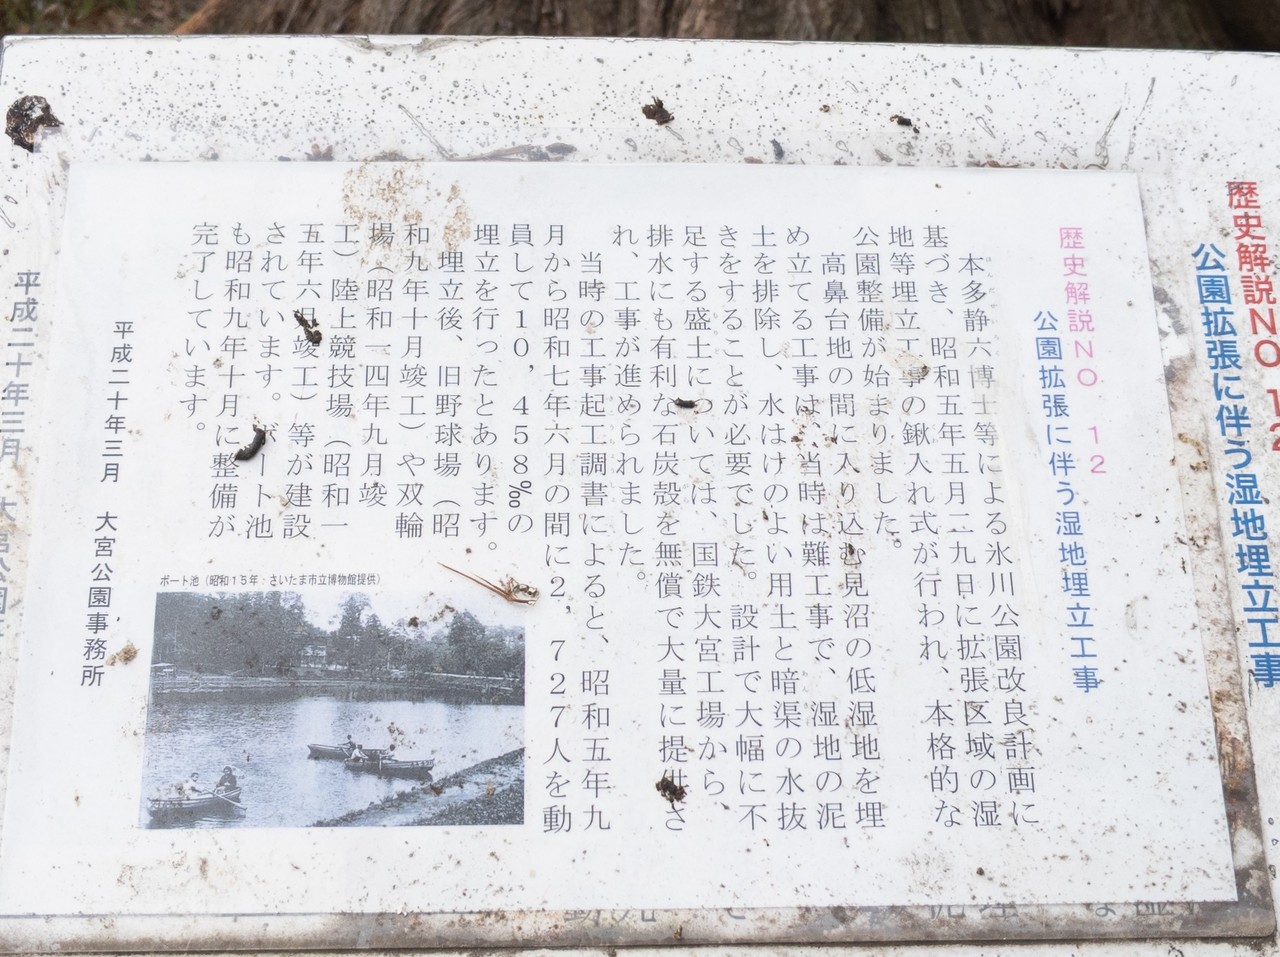 歴史解説NO 12
公園拡張に伴う湿地埋立工事
歴史解説NO.12
公園拡張に伴う湿地埋立工事
本多静六博士等による氷川公園改良計画に
基づき、昭和五年五月二九日に拡張区域の湿
地等埋立工事の鍬入れ式が行われ、本格的な
公園整備が始まりました。
高鼻台地の間に入り込む見沼の低湿地を埋
め立てる工事は、当時は難工事で、湿地の泥
土を排除し、水はけのよい用土と暗渠の水抜
きをすることが必要でした。設計で大幅に不
足する盛土については、国鉄大宮工場から、
排水にも有利な石炭殻を無償で大量に提供さ
れ、工事が進められました。
当時の工事起工調書によると、昭和五年九
月から昭和七年六月の間に2,727人を動
員して10,458‰の
埋立を行ったとあります。
埋立後、旧野球場（昭
和九年十月竣工）や双輪
場（昭和一四年九月竣
工）陸上競技場（昭和一
五年六月竣工）等が建設
されています。ボート池
も昭和九年十月に整備が
完了しています。
ボート池（昭和15年：さいたま市立博物館提供）
平成二十年三月　大宮公園事務所
平成二十年三月　大宮公園